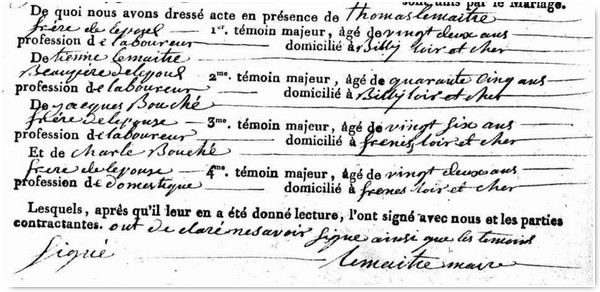 sont unis par le Mariage.
De quoi nous avons dressé acte en présence de Thomas lemaitre
frère de lepoux 1er. témoin majeur, âgé de vingt deux ans
profession de laboureur domicilié à Billy loir et cher
De tienne lemaitre
Beaupère de lepoux 2me. témoin majeur, âgé de quarante cinq ans
profession de laboureur domicilié à Billy loir et cher
De jacques Bouché
frère de lepouse 3me. témoin majeur, âgé de vingt six ans
profession de laboureur domicilié à frenes loir et cher
Et de Charle Bouché
frere de lepouse 4me. témoin majeur, âgé de vingt deux ans
profession de domestique domicilié à frenes loir et cher
Lesquels, après qu'il leur en a été donné lecture, l'ont signé avec nous et les parties
contractantes. out de claré ne savoir signe ainsi que les temoins
Signé lemaitre maire